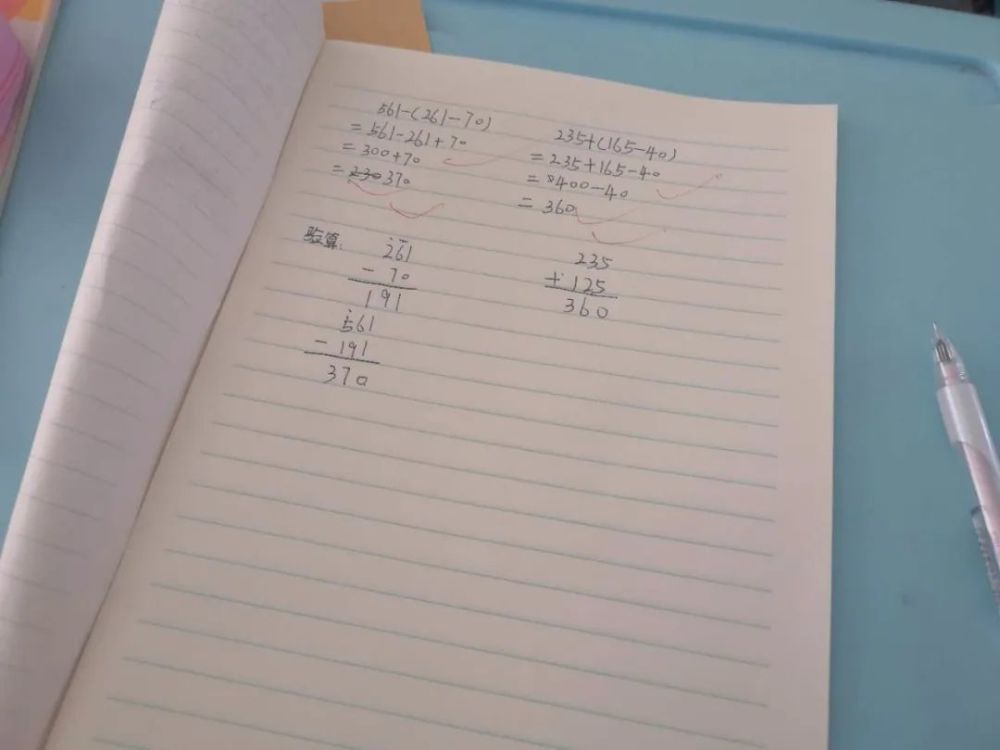 561-(261-70)
=561-261+70
=300+70
=370
235+(165-40)
=235+165-40
=400-40
=360
验算:
261
-70
191
561
-191
370
235
+125
360